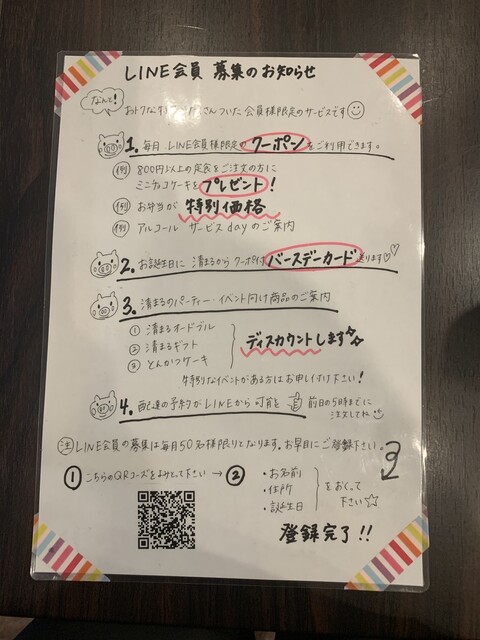 LINE会員 募集のお知らせ
なんと!
おトクな サービスがたくさんついた 会員様限定のサービスです
1. 毎月 LINE会員様限定の クーポン をご利用できます。
例 800円以上の定食をご注文の方に
ミニチョコケーキを プレゼント!
例 お弁当が 特別価格
例 アルコール サービスdayのご案内
2. お誕生日に 清まるから クーポン付 バースデーカード 送ります♡♡
3. 清まるのパーティー・イベント向け商品のご案内
① 清まるオードブル
② 清まるギフト
③ とんかつケーキ
ディスカウントします
特別なイベントがある方は お申し付け下さい!
4. 配達の予約がLINEから 可能を 前日の5時までに
注文してね
注 LINE会員の募集は毎月50名様限りとなります。お早目にご登録下さい。
① こちらのQRコーズをよみとって下さい → ②
・お名前
・住所
・誕生日
をおくって
下さい☆☆
登録完了!!